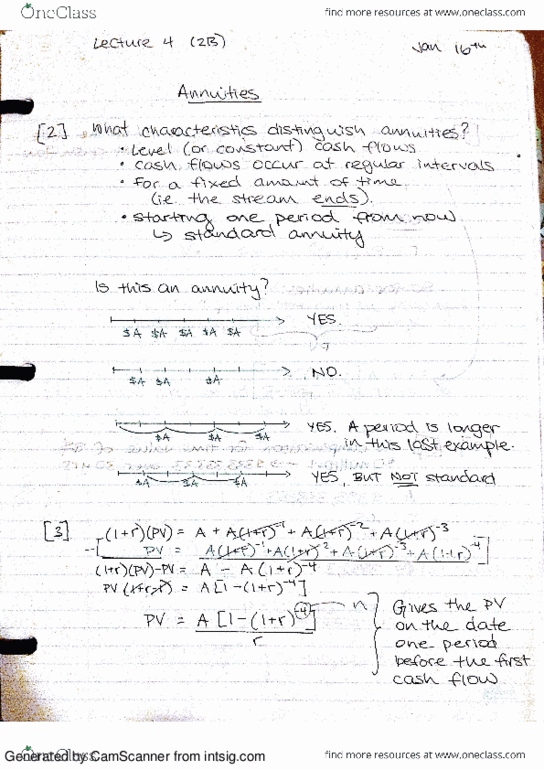 OneClass
find more resources at www.oneclass.com
Lecture 4 (2B)
Jan 16th
Annuities
[2] What characteristics distinguish annuities?
• level (or constant) cash flows
• cash flows occur at regular intervals
• for a fixed amount of time
(i.e. the stream ends).
• starting one period from now
↳ standard annuity
Is this an annuity?
YES.
$A $A $A $A $A
NO.
$A $A $A
YES. A period is longer
$A $A $A
in this last example.
YES, BUT NOT standard
$A $A $A
[3] (1+r)(PV) = A + A(1+r)⁻¹ + A(1+r)⁻² + A(1+r)⁻³
-[ PV = A(1+r)⁻¹+A(1+r)⁻²+A(1+r)⁻³+A(1+r)⁻⁴]
(1+r)(PV)-PV = A - A(1+r)⁻⁴
PV (1+r-1) = A[1-(1+r)⁻⁴]
PV = A [1-(1+r)⁻⁴] n
r
Gives the PV
on the date
one period
before the first
cash flow
Generated by CamScanner from intsig.com
OneClass
find more resources at www.oneclass.com